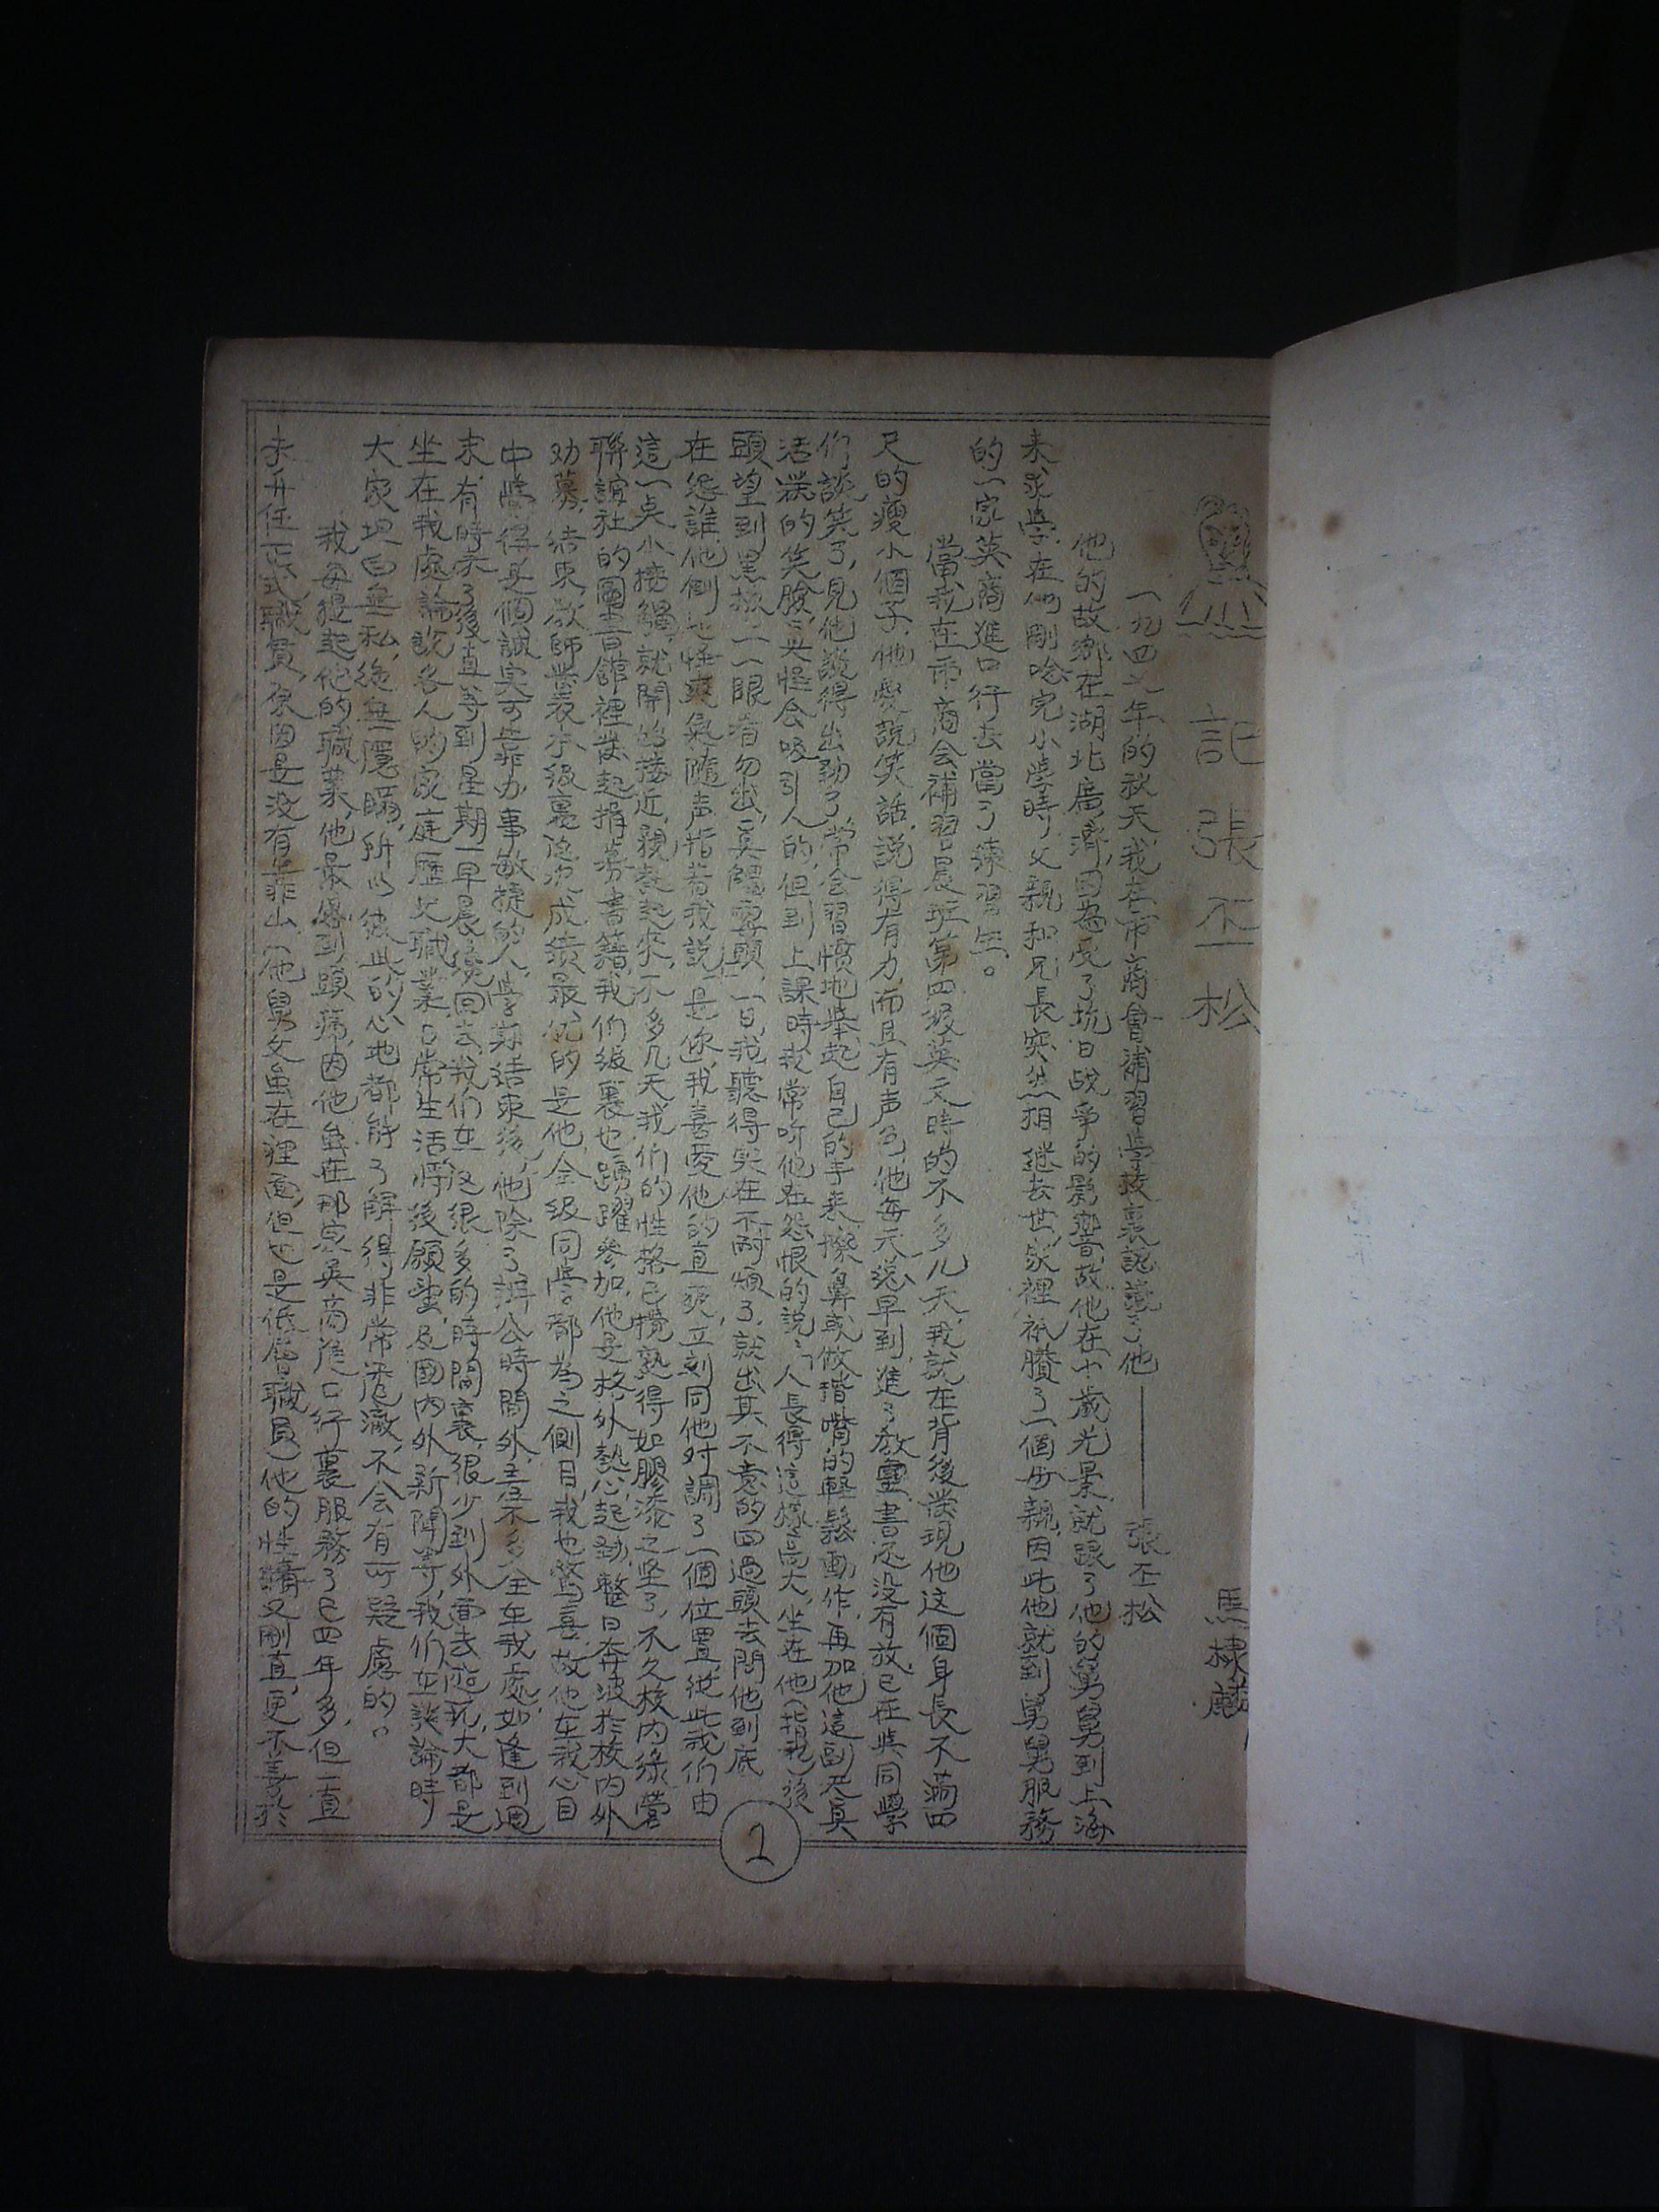 記張丕松
馬棣麟
一九四七年的秋天,我在市商會補習學校裏認識了他——張丕松
他的故鄉在湖北廣濟,因為受了抗日戰爭的影響,故他在十歲光景就跟了他的舅舅到上海
來求學,在他剛唸完小學時,父親和兄長突然相繼去世,家裡祇賸了一個母親,因此他就到舅舅服務
的一家英商進口行去當了練習生。
當我在市商会補習晨班第四级英文時的不多几天,我就在背後發現他这個身長不滿四
尺的瘦小個子,他愛說笑話,說得有力,而且有声色,他每天總早到,進了教室,書还没有放,已在與同學
们談笑了,見他說得出勁了,常会習慣地舉起自己的手来擦鼻或做揩嘴的輕鬆動作,再加他這副天真
活潑的笑臉,真怪会吸引人的,但到上課時我常听他在怨恨的說:「人長得這樣高大,坐在他(指我)後
頭望到黑板,一眼看勿出,真觸霉頭,一日,我聽得実在不耐煩了,就出其不意的回過頭去問他到底
在怨誰,他倒也怪爽氣,隨声指着我說:「是你」我喜愛他的直爽,立刻同他对調了一個位置,從此我们由
這一点小接觸,就開始接近,親熱起來,不多几天我们的性格已攪熟得如膠漆之坚了,不久校内綠營
聯誼社的圖書館裡發起捐募書籍,我们级裏也踴躍參加,他是格外熱心起勁,整日奔波於校内外
劝募,结束,欲師發表本级裏 成績最优的是他,全级同学都為之側目,我也驚喜,故他在我心目
中覺得是個誠実可靠,办事敏捷的人,學期结束後,他除了辦公時間外,差不多全在我處,如逢到週
末,有時来了後直等到星期一早晨後回去,我们在这很多的時間裏,很少到外面去遊玩,大都是
坐在我處論說各人的家庭歷史職業日常生活情後願望,及國内外新聞等,我们在談論時
大家坦白無私,絶無隱瞞,所以彼此的心地都能了解得非常透澈,不会有可疑慮的。
我每提起他的職業,他最感到頭痛,因他虽在那家英商進口行裏服務了已四年多,但一直
未升任正式職員,原因是没有靠山,(他舅父虽在裡面,但也是低層職員)他的性情又剛直,更不善於
2